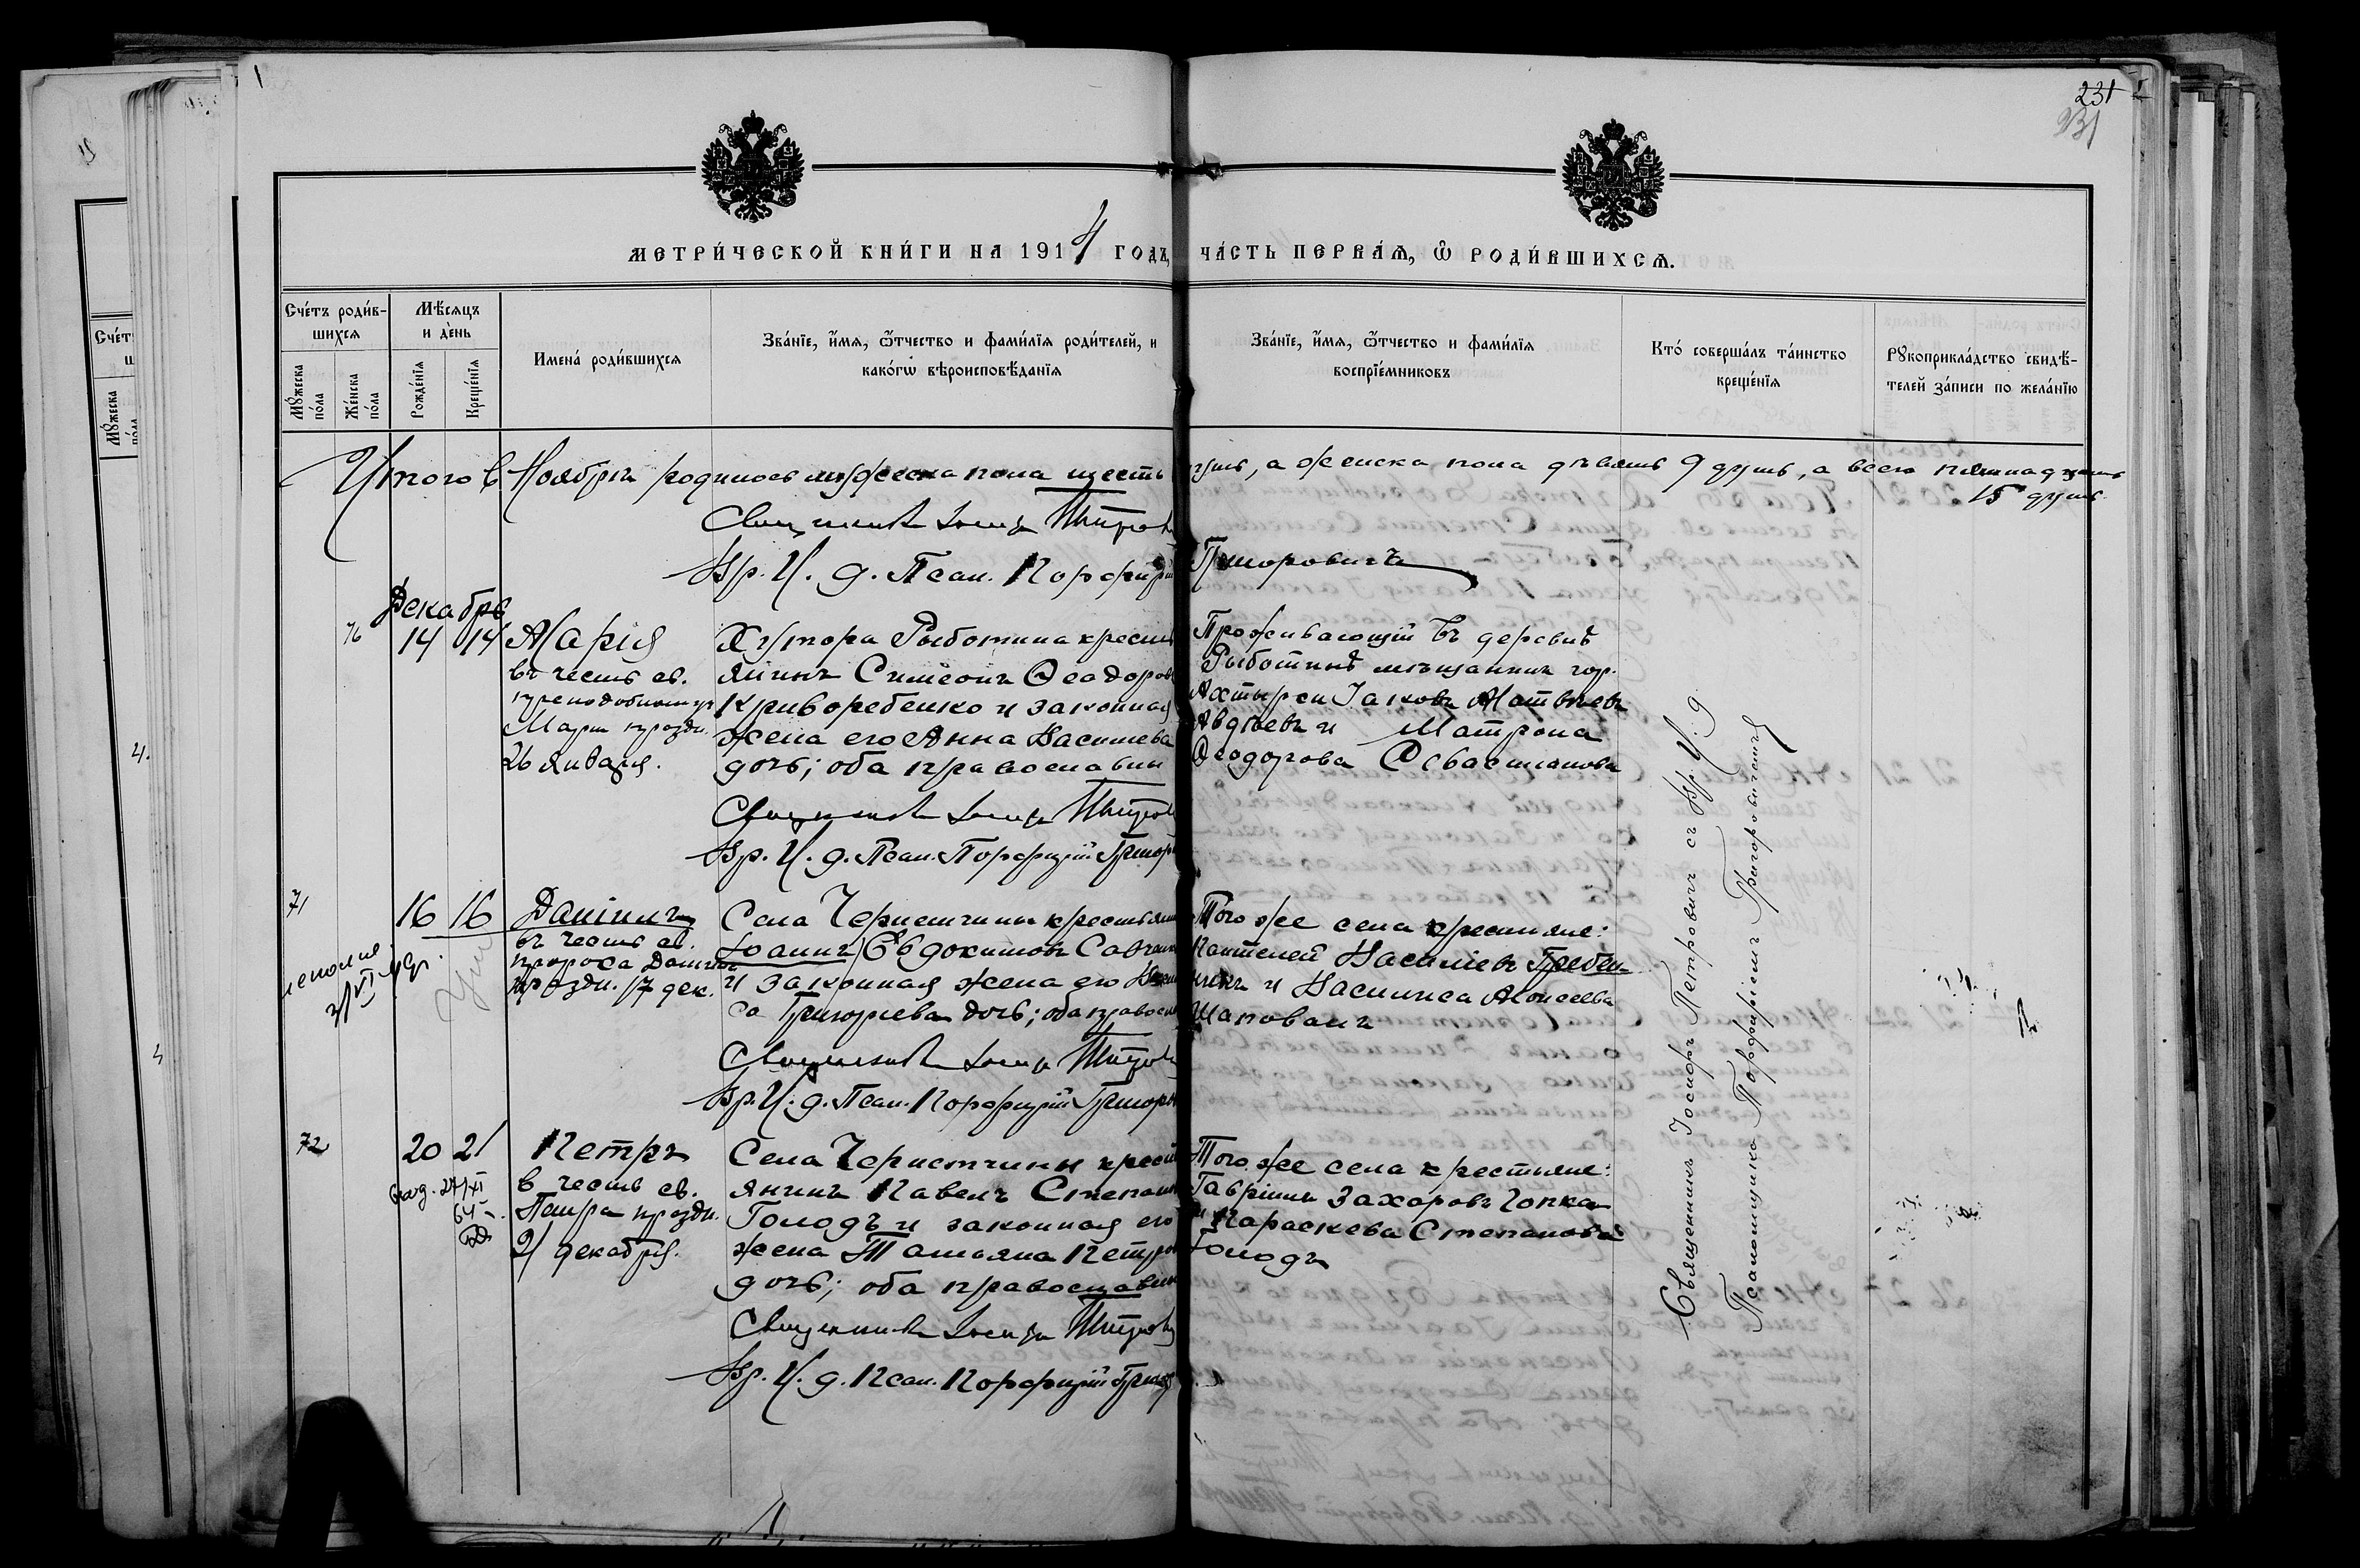 231
231
МЕТРИ́ЧЕСКОЙ КНИ́ГИ НА 1914 ГОДЪ, ЧА́СТЬ ПЕРВАѦ, Ѿ РОДИ́ВШИХСѦ.
Сче́тъ роди́в-
шихсѧ
Мꙋжеска по́ла
Же́нска по́ла
Мѣ́сѧцъ
и де́нь
Рожде́нїѧ
Креще́нїѧ
Имена́ роди́вшихсѧ
Зва́нїе, и́мѧ, ѻ́тчество и фами́лїѧ роди́телей, и
како́гѡ вѣроисповѣ́данїѧ
Зва́нїе, и́мѧ, ѻ́тчество и фами́лїѧ
воспрїе́мниковъ
Кто́ соверша́лъ та́инство
креще́нїѧ
Рꙋкоприкла́дство свидѣ́-
телей за́писи по жела́нїю
Итого в Ноябрѣ родилось мужеска пола шесть душъ, а женска пола девять 9 душъ, а всего пятнадцать
15 душъ.
Священникъ Іосифъ Петровичъ
Вр. И. д. Псал. Порфирій Григоровичъ
Декабрь
76
14 14
Марія
въ честь св.
преподобныя
Маріи праздн.
26 января.
Хутора Рыботина кресть
янинъ Симеонъ Ѳеодоровъ
Криворебенко и законная
жена его Анна Васильева
дочь; оба православны
Священникъ Іосифъ Петровичъ
Вр. И. д. Псал. Порфирій Григоров
Проживающій въ деревнѣ
Рыботинѣ мѣщанинъ гор.
Ахтырки Іаковъ Матвѣевъ
Авдѣевъ и Матрона
Ѳеодорова Севастьянова
71
16 16
Даніилъ
въ честь св.
пророка Даніила
праздн. 17 дек.
Села Чернетчины крестьянинъ
Іоаннъ Евдокимовъ Савченко
и законная жена его
са Григорьева дочь; оба правосл
Священникъ Іосифъ Петровичъ
Вр. И. д. Псал. Порфирій Григоров
Того же села крестьяне:
Пантелей Василіевъ Гребен-
никъ и Василиса Моисеева
Шаповалъ
72
20 21
Петръ
в честь св.
Петра праздн.
21 декабря.
Села Чернетчины кресть
янинъ Павелъ Степановъ
Голодъ и законная его
жена Татьяна Петрова
дочь; оба православны
Священникъ Іосифъ Петровичъ
Вр. И. д. Псал. Порфирій Григор
Того же села крестьяне:
Гавріилъ Захаровъ Чопка
и Параскева Степанова
Голодъ
Священникъ Іосифъ Петровичъ съ Вр. И. д.
Псаломщика Порфиріемъ Григоровичемъ